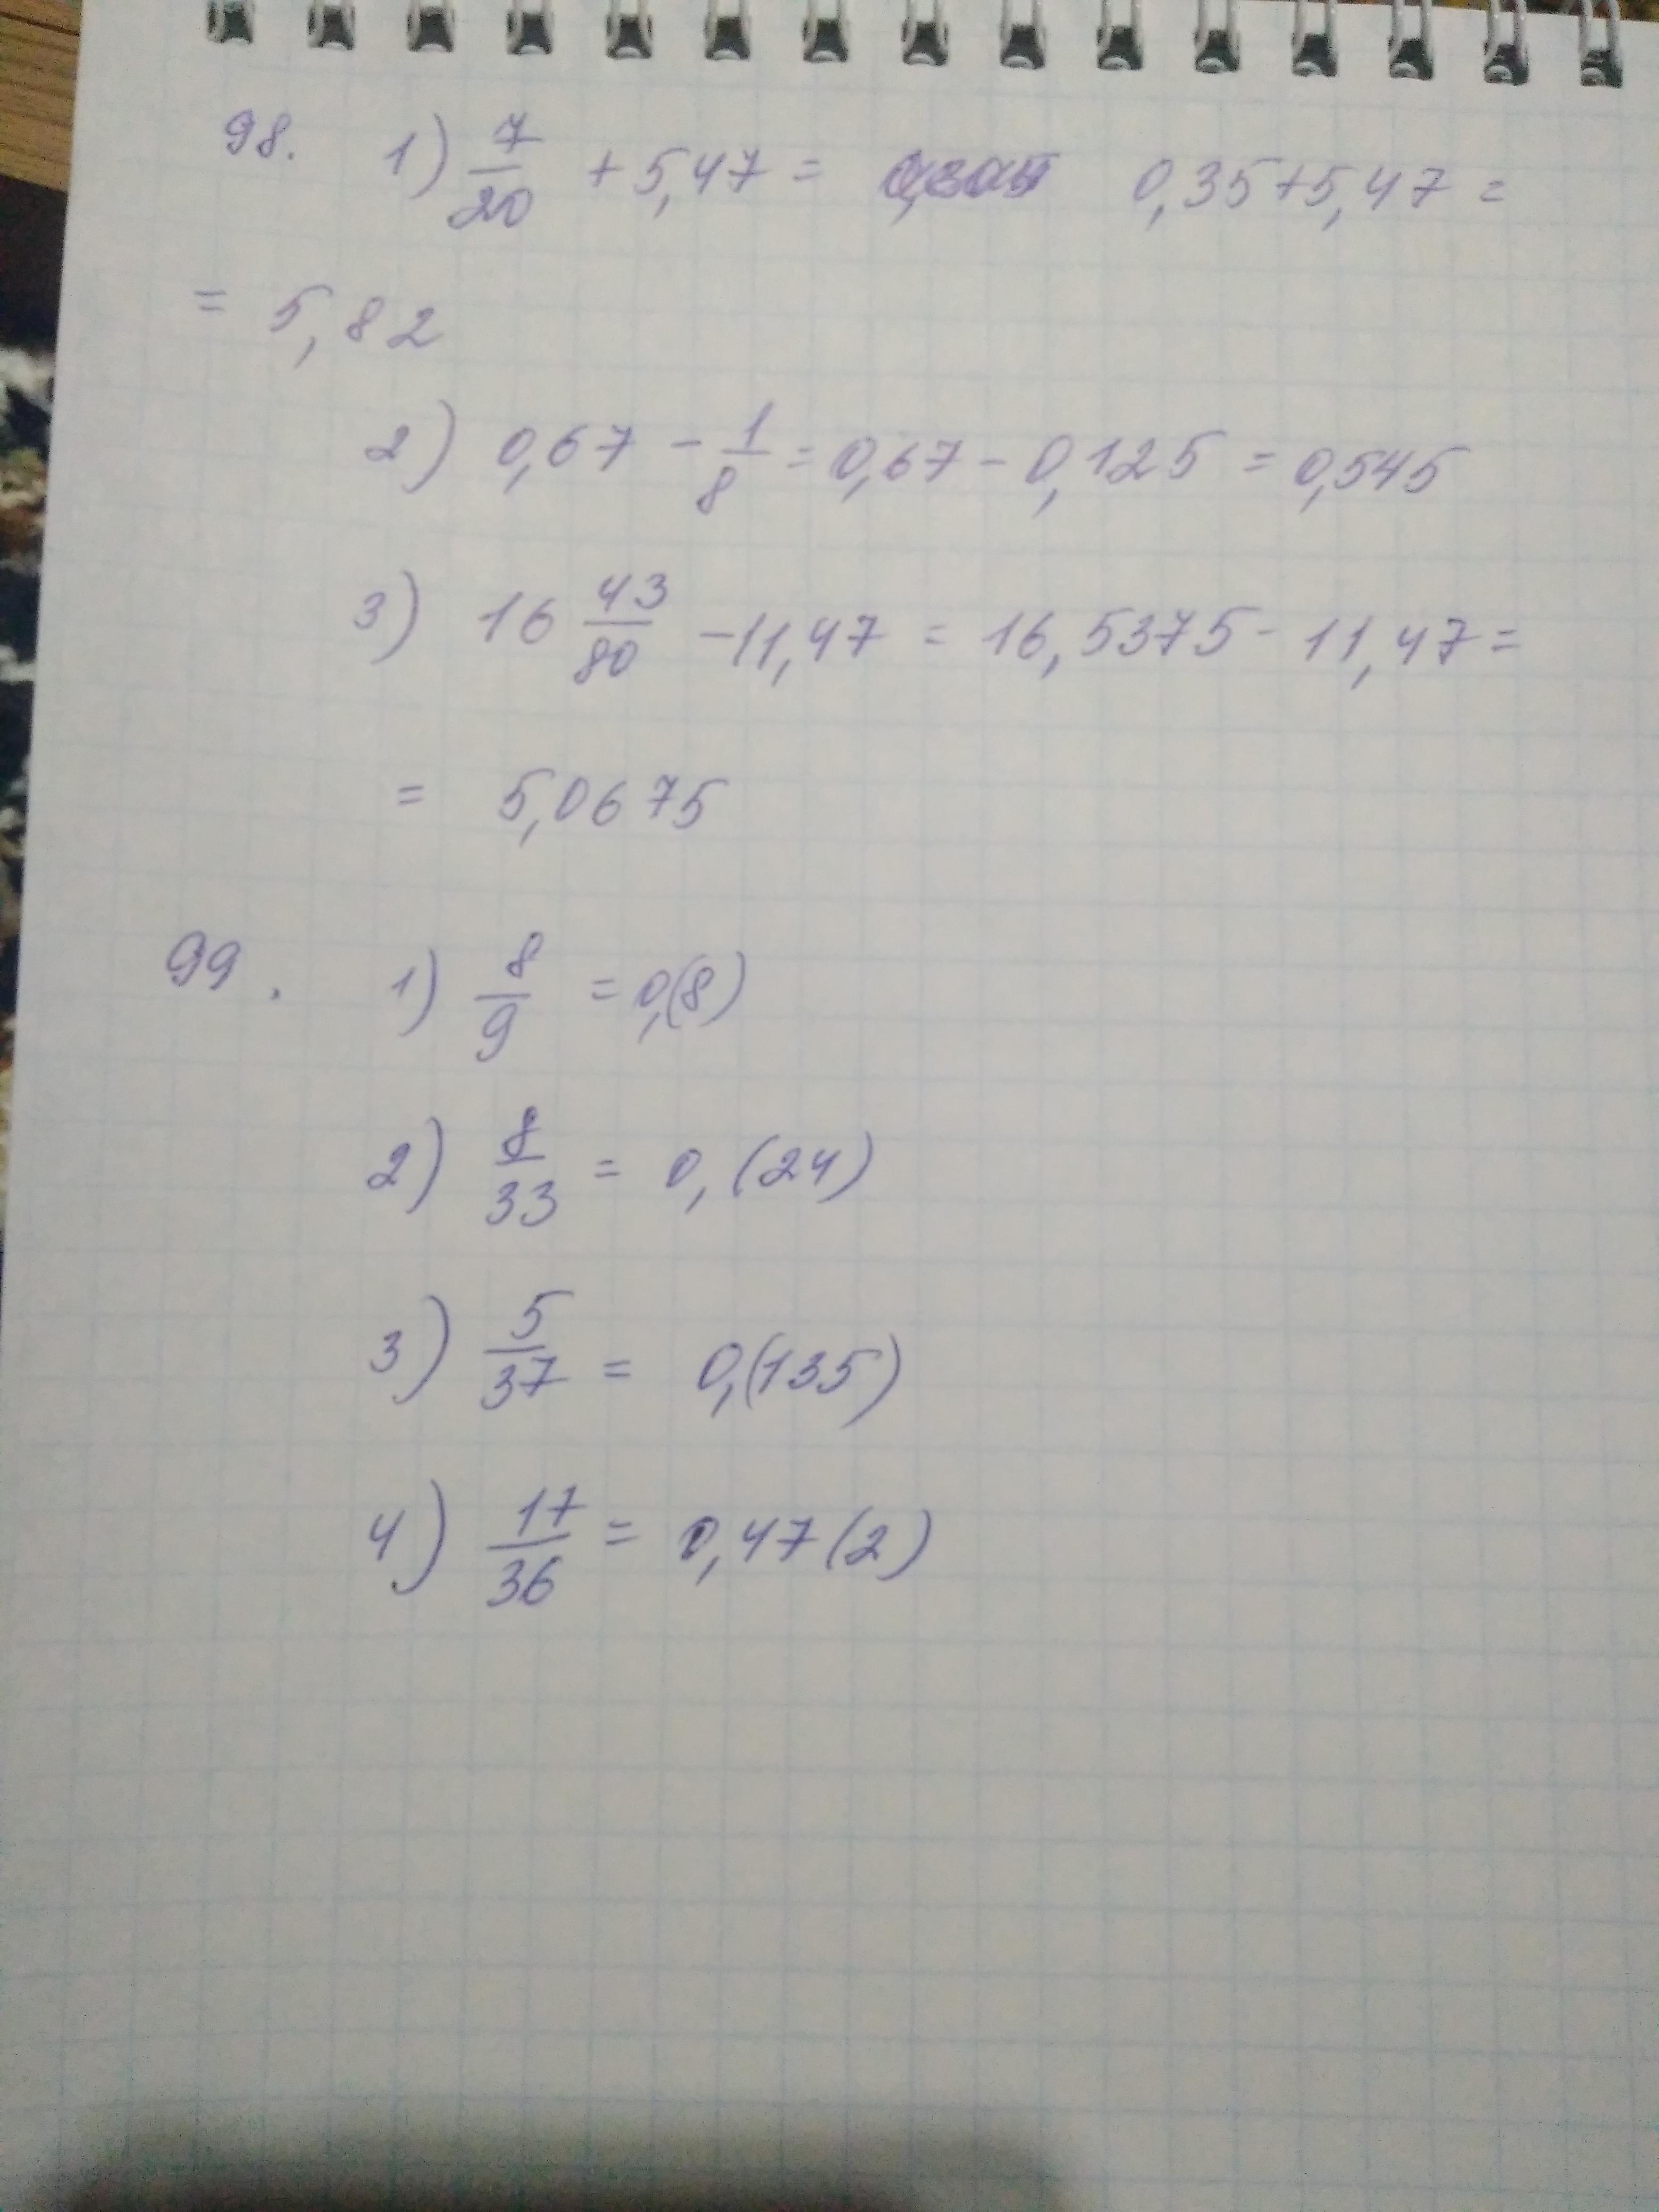 98. 1) 7/20 + 5,47 = 0,35+5,47 =
= 5,82
2) 0,67 - 1/8 = 0,67 - 0,125 = 0,545
3) 16 43/80 - 11,47 = 16,5375 - 11,47 =
= 5,0675
99. 1) 8/9 = 0,(8)
2) 8/33 = 0,(24)
3) 5/37 = 0,(135)
4) 17/36 = 0,47(2)